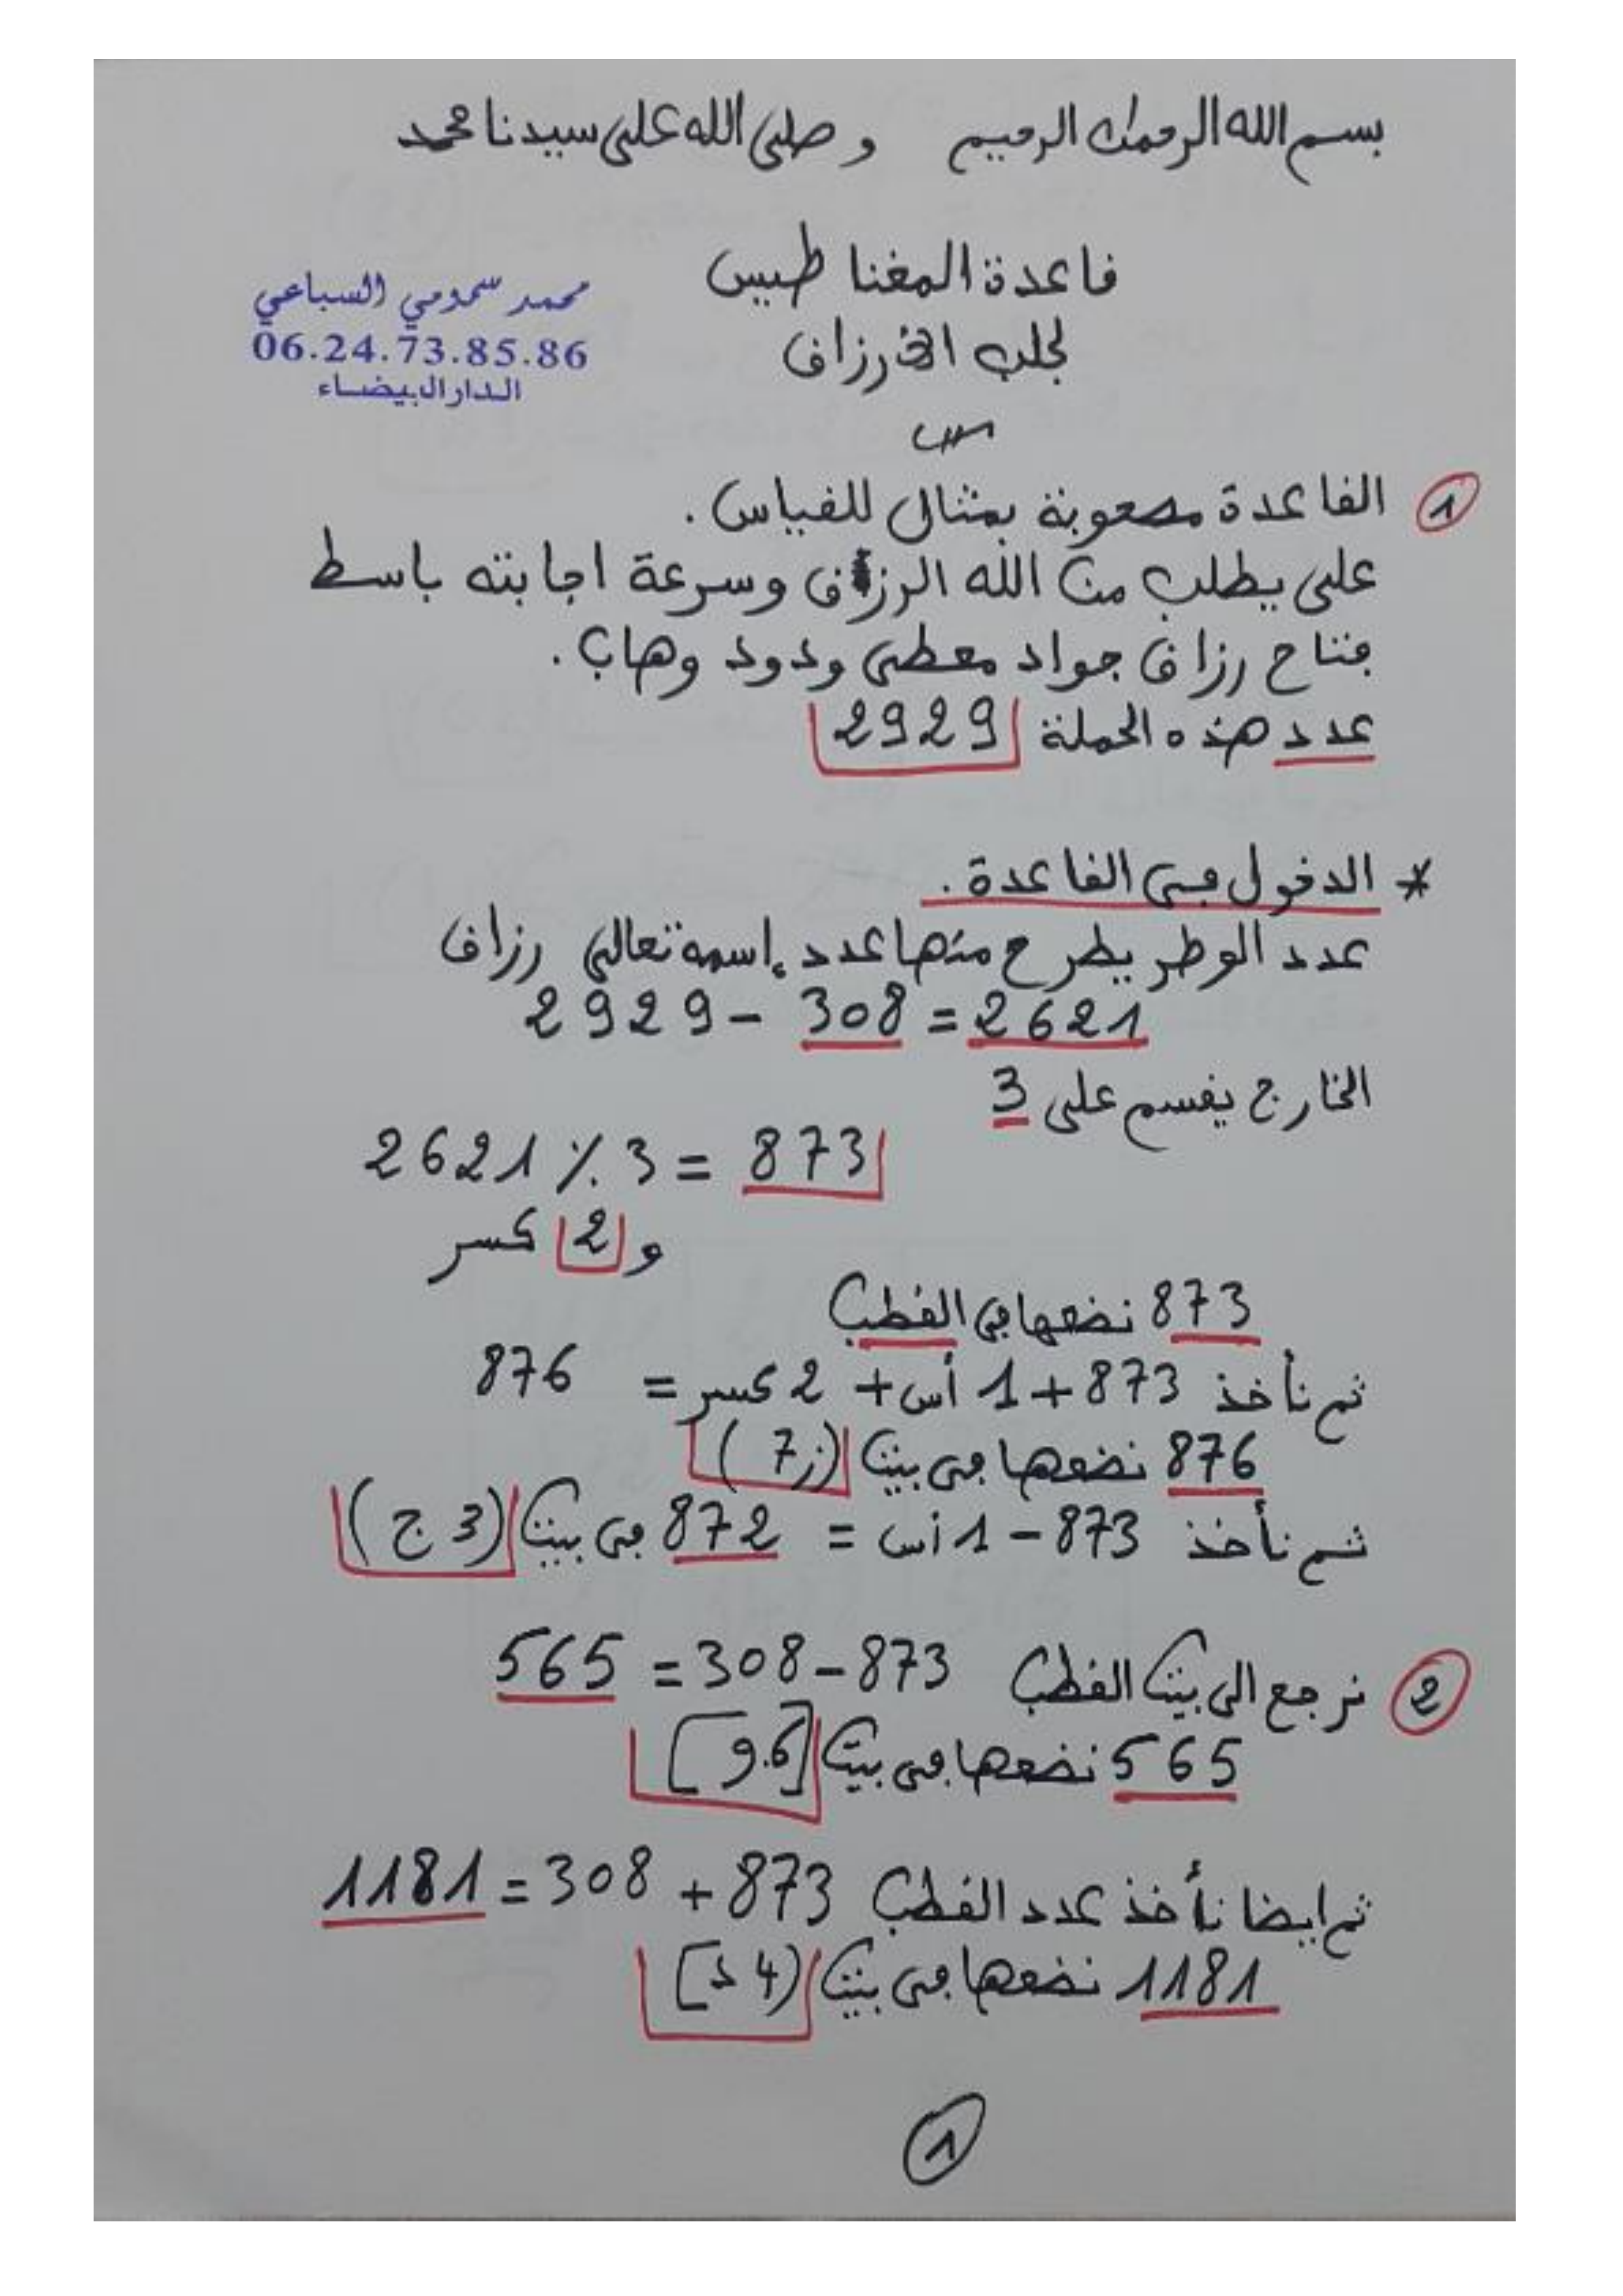 بسم الله الرحمان الرحيم وصلى الله على سيدنا محمد
قاعدة المغناطيس
لجلب الأرزاق
محمد سمومي السباعي
06.24.73.85.86
الدار البيضاء
1 القاعدة مصحوبة بمثال للقياس.
على يطلب من الله الرزاق وسرعة اجابته باسط
فتاح رزاق جواد معطي ودود وهاب.
عدد هذه الجملة 2929
* الدخول في القاعدة.
عدد الوطر يطرح منها عدد إسمه تعالى رزاق
2929 - 308 = 2621
الخارج يقسم على 3
2621 ٪ 3 = 873
و 2 كسر
873 نضعها في القطب
ثم نأخذ 873 + 1 أس + 2 كسر = 876
876 نضعها في بيت (ز 7)
ثم نأخذ 873 - 1 أس = 872 في بيت (3 ج)
2 نرجع الى بيت القطب 873 - 308 = 565
565 نضعها في بيت [6.و]
ثم ايضا نأخذ عدد القطب 873 + 308 = 1181
1181 نضعها في بيت (4 د]
1